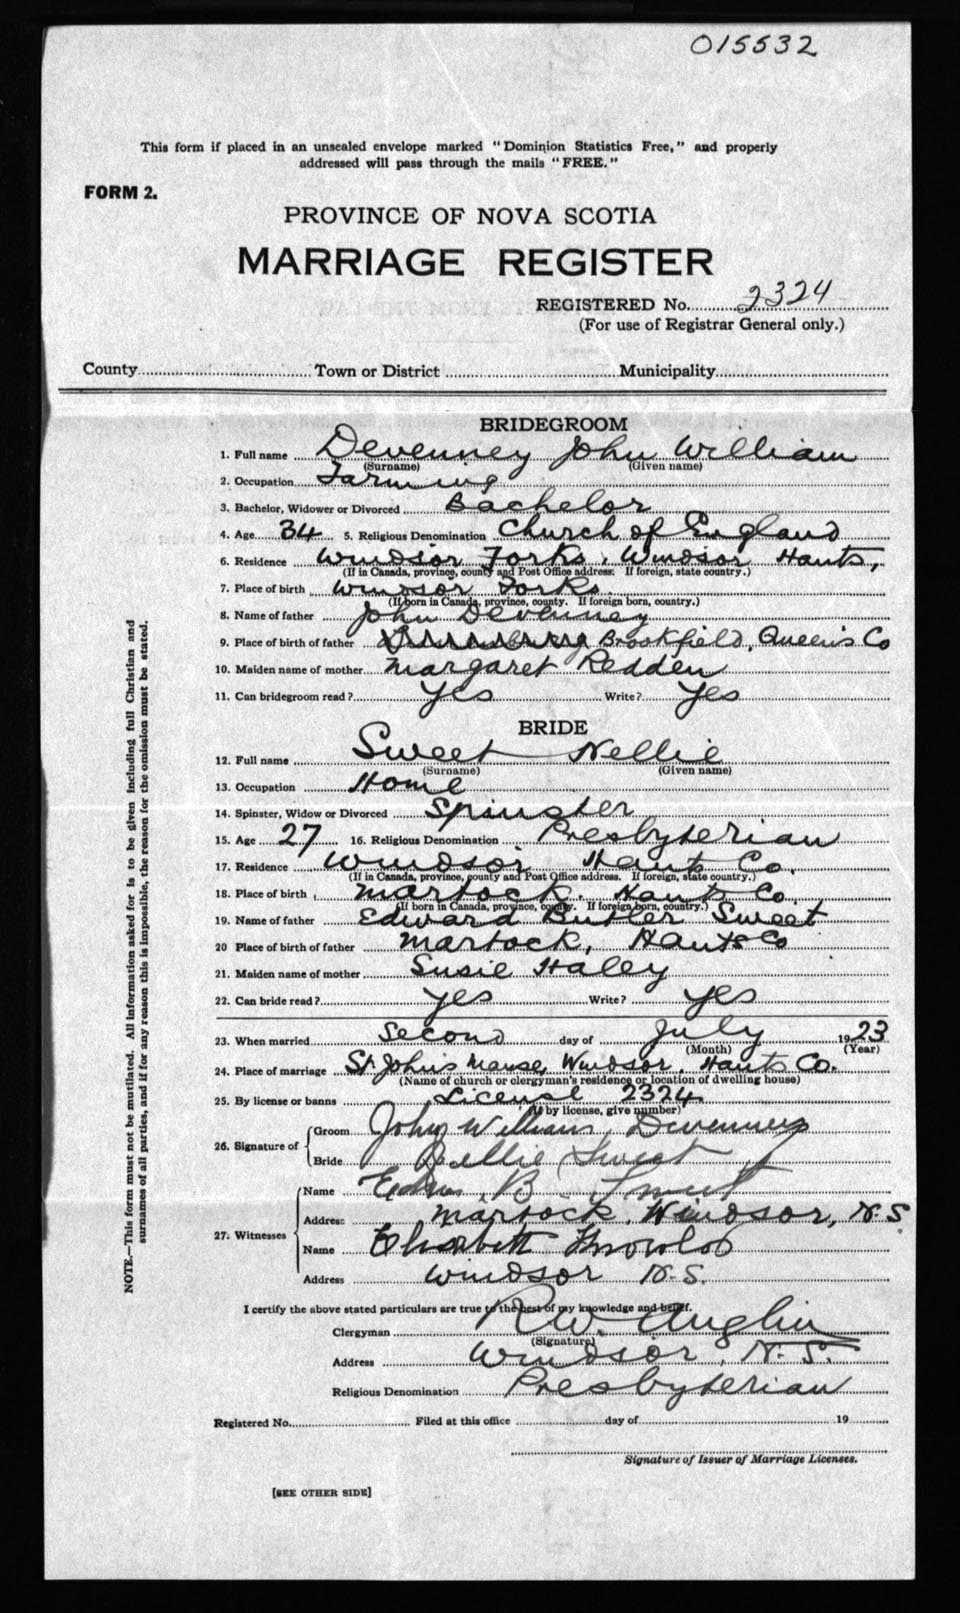 015532
This form if placed in an unsealed envelope marked "Dominion Statistics Free," and properly
addressed will pass through the mails "FREE."
FORM 2.
PROVINCE OF NOVA SCOTIA
MARRIAGE REGISTER
REGISTERED No. 2324
(For use of Registrar General only.)
County Town or District Municipality
BRIDEGROOM
1. Full name Devenney John William
(Surname) (Given name)
2. Occupation Farming
3. Bachelor, Widower or Divorced Bachelor
4. Age 34 5. Religious Denomination Church of England
6. Residence Windsor Forks, Windsor Hants,
(If in Canada, province, county and Post Office address. If foreign, state country.)
7. Place of birth Windsor Forks
(If born in Canada, province, county. If foreign born, country.)
8. Name of father John Devenney
9. Place of birth of father Brookfield, Queen's Co
10. Maiden name of mother Margaret Redden
11. Can bridegroom read? Yes Write? Yes
BRIDE
12. Full name Sweet Nellie
(Surname) (Given name)
13. Occupation Home
14. Spinster, Widow or Divorced Spinster
15. Age 27 16. Religious Denomination Presbyterian
17. Residence Windsor Hants Co.
(If in Canada, province, county and Post Office address. If foreign, state country.)
18. Place of birth Martock, Hants Co.
(If born in Canada, province, county. If foreign born, country.)
19. Name of father Edward Butler Sweet
20 Place of birth of father Martock, Hants Co
21. Maiden name of mother Susie Haley
22. Can bride read? yes Write? yes
23. When married Second day of July 1923
(Month) (Year)
24. Place of marriage St. John's Manse, Windsor, Hants Co.
(Name of church or clergyman's residence or location of dwelling house)
25. By license or banns License 2324
(If by license, give number)
26. Signature of Groom John William Devenney
Bride Nellie Sweet
27. Witnesses Name B. Sweet
Address Martock, Windsor, N.S.
Name Elizabeth
Address Windsor N.S.
I certify the above stated particulars are true to the best of my knowledge and belief.
Clergyman R.W. Anglin
(Signature)
Address Windsor, N.S.
Religious Denomination Presbyterian
Registered No. Filed at this office day of 19
Signature of Issuer of Marriage Licenses.
[SEE OTHER SIDE]
NOTE.—This form must not be mutilated. All information asked for is to be given including full Christian and
surnames of all parties, and if for any reason this is impossible, the reason for the omission must be stated.